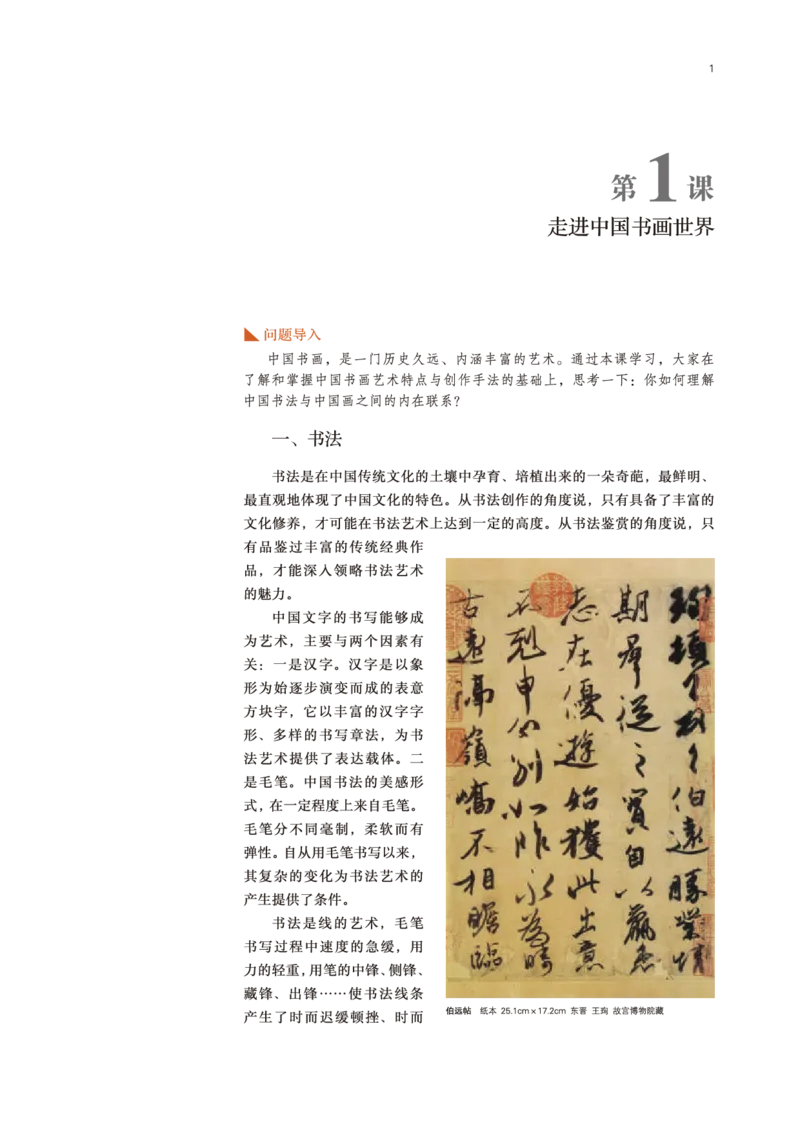 1
第1课
走进中国书画世界
问题导入
中国书画，是一门历史久远、内涵丰富的艺术。通过本课学习，大家在
了解和掌握中国书画艺术特点与创作手法的基础上，思考一下：你如何理解
中国书法与中国画之间的内在联系？
一、书法
书法是在中国传统文化的土壤中孕育、培植出来的一朵奇葩，最鲜明、
最直观地体现了中国文化的特色。从书法创作的角度说，只有具备了丰富的
文化修养，才可能在书法艺术上达到一定的高度。从书法鉴赏的角度说，只
有品鉴过丰富的传统经典作
品，才能深入领略书法艺术
的魅力。
中国文字的书写能够成
为艺术，主要与两个因素有
关：一是汉字。汉字是以象
形为始逐步演变而成的表意
方块字，它以丰富的汉字字
形、多样的书写章法，为书
法艺术提供了表达载体。二
是毛笔。中国书法的美感形
式，在一定程度上来自毛笔。
毛笔分不同毫制，柔软而有
弹性。自从用毛笔书写以来，
其复杂的变化为书法艺术的
产生提供了条件。
书法是线的艺术，毛笔
书写过程中速度的急缓，用
力的轻重，用笔的中锋、侧锋、
藏锋、出锋……使书法线条
产生了时而迟缓顿挫、时而
珣頓首頓首伯遠勝業情
期羣從之寳自以羸患
志在優遊始獲此出意
不剋申分別如昨永為疇
古遠隔嶺嶠不相瞻臨
伯远帖 纸本 25.1cm×17.2cm 东晋 王珣 故宫博物院藏